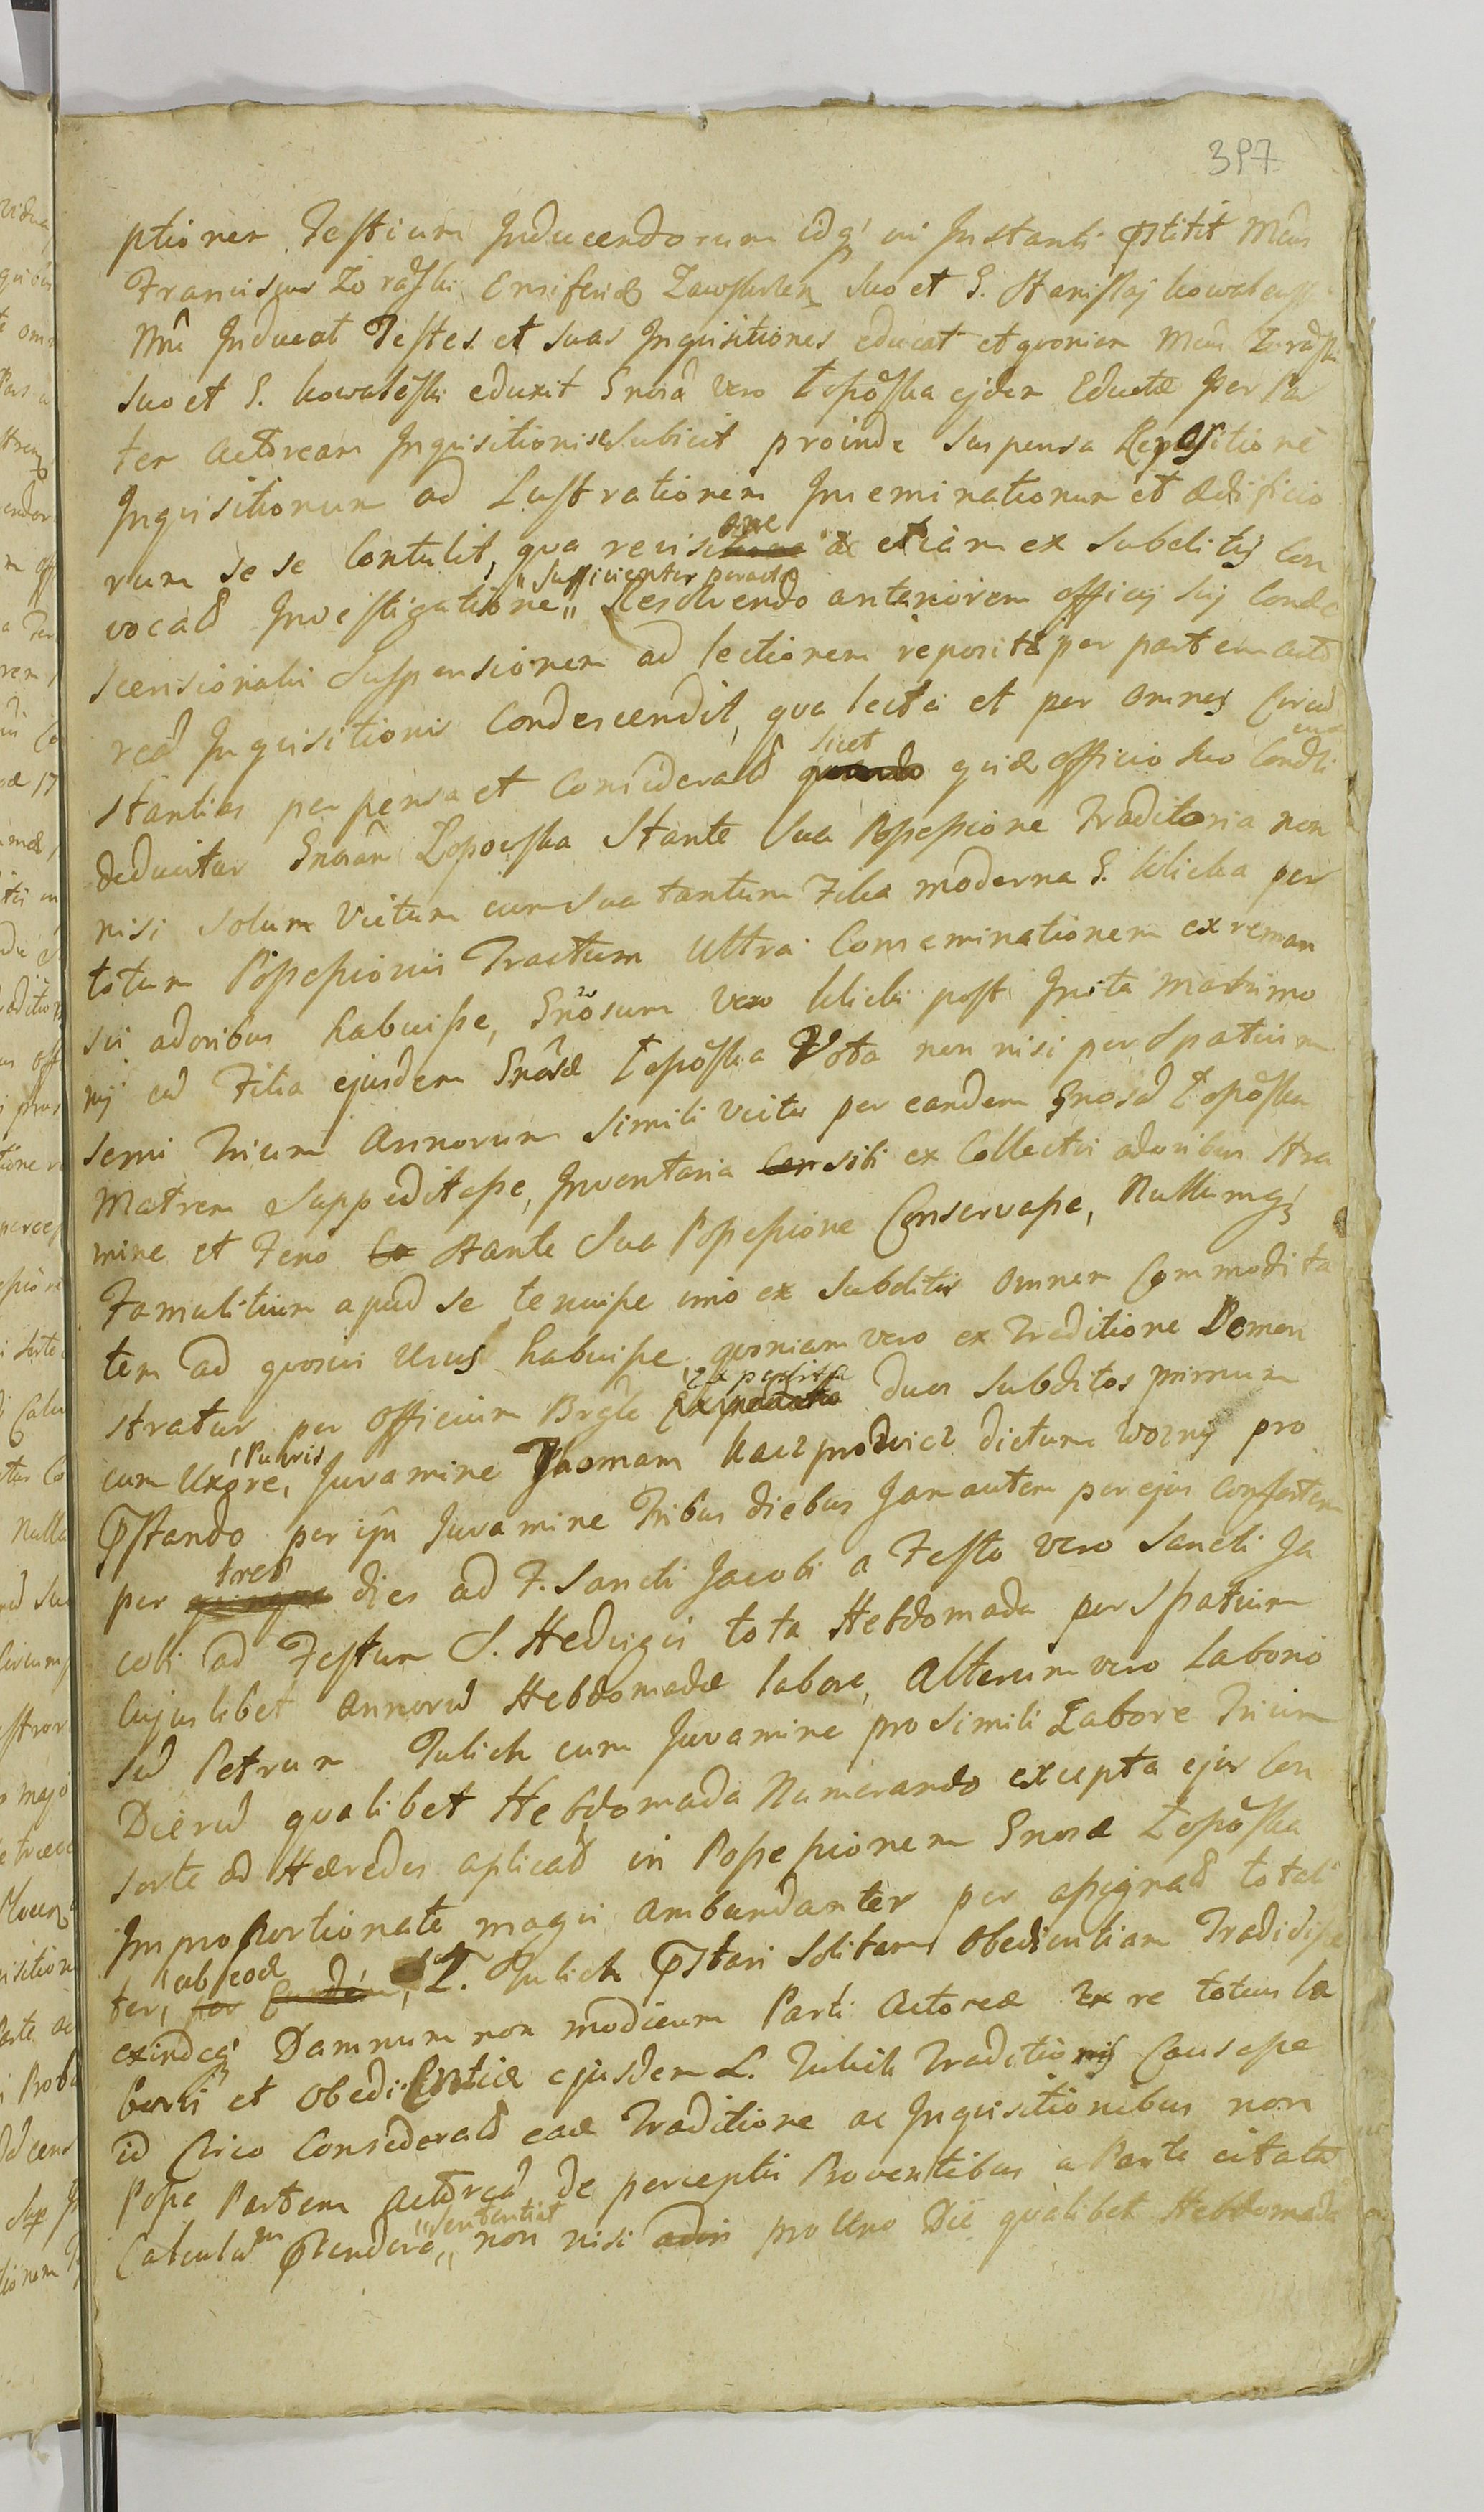 397
ptionem Testium Inducendorum idq; in Instanti pstitit Mcus
Franciscus Zorawski Ensifer Zawskrzen suo et G. Stanislaj Kowalewski
Nne Inducat Testes et suas Inquisitiones educat et quoniam Mcus Zorawski
suo et G. Kowalewski eduxit Gnosa vero Łeposka ejdem Eductæ per Par
tem Actoream Inquisitioni se Subicit proinde suspensa Repositione
Inquisitionum ad Lustrationem Inseminationum et ædificio
rum se se Contulit, qua revisione ac etiam ex subditis Con
vocatis Investigatione "sufficienter peracta" Resolvendo anteriorem officij sui Conde
scensionalis suspensionem ad lectionem repositæ per partem acto
ream Inquisitionis Condescendit, qua lecta et per omnes Circum
stantias perpensa et Considerata licet quia officio suo Condli
deducitur Gnosam Łeposka Stante sua Possessione Traditoria non
nisi solum Victum cum sua tantum Filia moderna G. Klicka per
totum Possessionis Tractum Ultra Consæminationem ex reman
sis adoribus habuisse, Gnosum vero Klicki post Inita Matrimo
nij cum Filia ejusdem Gnosæ Łeposka Vota non nisi per Spatium
semi Trium Annorum simili Victu per eandem Gnosam Łeposka
Matrem Suppeditasse, Inventaria sibi ex Collectis adoribus Stra
mine et Feno stante sua Possessione Conservasse, Nullumq;
Famulitium apud se tenuisse imo ex Subditis omnem Commodita
tem ad quosvis Usus habuisse, quoniam vero ex Traditione Demon
stratur per Officium Brgle Expedita duos subditos primum
cum Uxore, "Pueris Juvamine Thomam Kacz dictum Wozny pro
pstando per ipm Juvamine Tribus diebus Jam autem per ejus Consortem
per tres dies ad F. Sancti Jacobi a Festo vero Sancti Ja
cobi ad Festum S. Hedvigis tota Hebdomada per Spatium
Cujuslibet Annorum Hebdomadæ labore, Alterum vero Laborio
sum Petrum Tulich cum Juvamine pro simili Labore Trium
Dierum qualibet Hebdomada Numerando excepta ejus Con
sorte ad Hæredes aplicata in Possessionem Gnosæ Łeposka
Improportionate magis ambundanter per assignatam totali
ter, "ab eod L. Tulich pstari Solitam Obedientiam Tradidisse
exindeq; Damnum non modicum Parti Actoreæ Ex re totius la
boris et Obedientiæ ejusdem L. Tulich Traditionis Causasse
id Circo Considerata eade Traditione ac Inquisitionibus non
Posse Partem Actoream de perceptis Proventibus a Parte citata
Calculum ptendere, "sententiat" non nisi pro Uno Die qualibet Hebdomada